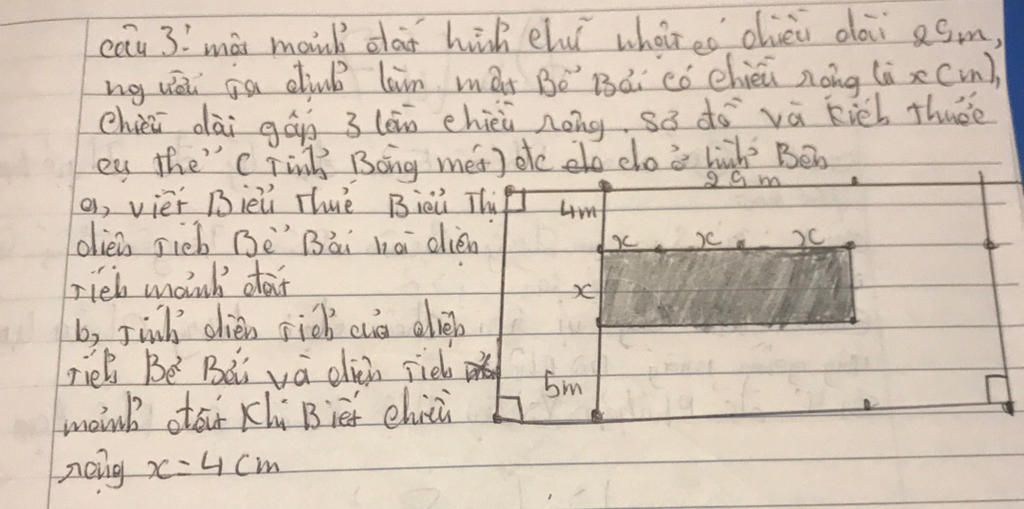 câu 3: một mảnh đất hình chữ nhật có chiều dài 25m,
người ta định làm một Bể Bơi có chiều rộng là x(m),
chiều dài gấp 3 lần chiều rộng. Sơ đồ và kích thước
cụ thể (Tính Bằng mét) đc cho ở hình Bên
a, viết Biểu Thức Biểu Thị
diện Tích Bể Bơi và diện
Tích mảnh đất
b, Tính diện Tích của diện
Tích Bể Bơi và diện Tích
mảnh đất Khi Biết chiều
rộng x = 4 cm
25m
4m
x x x
x
5m